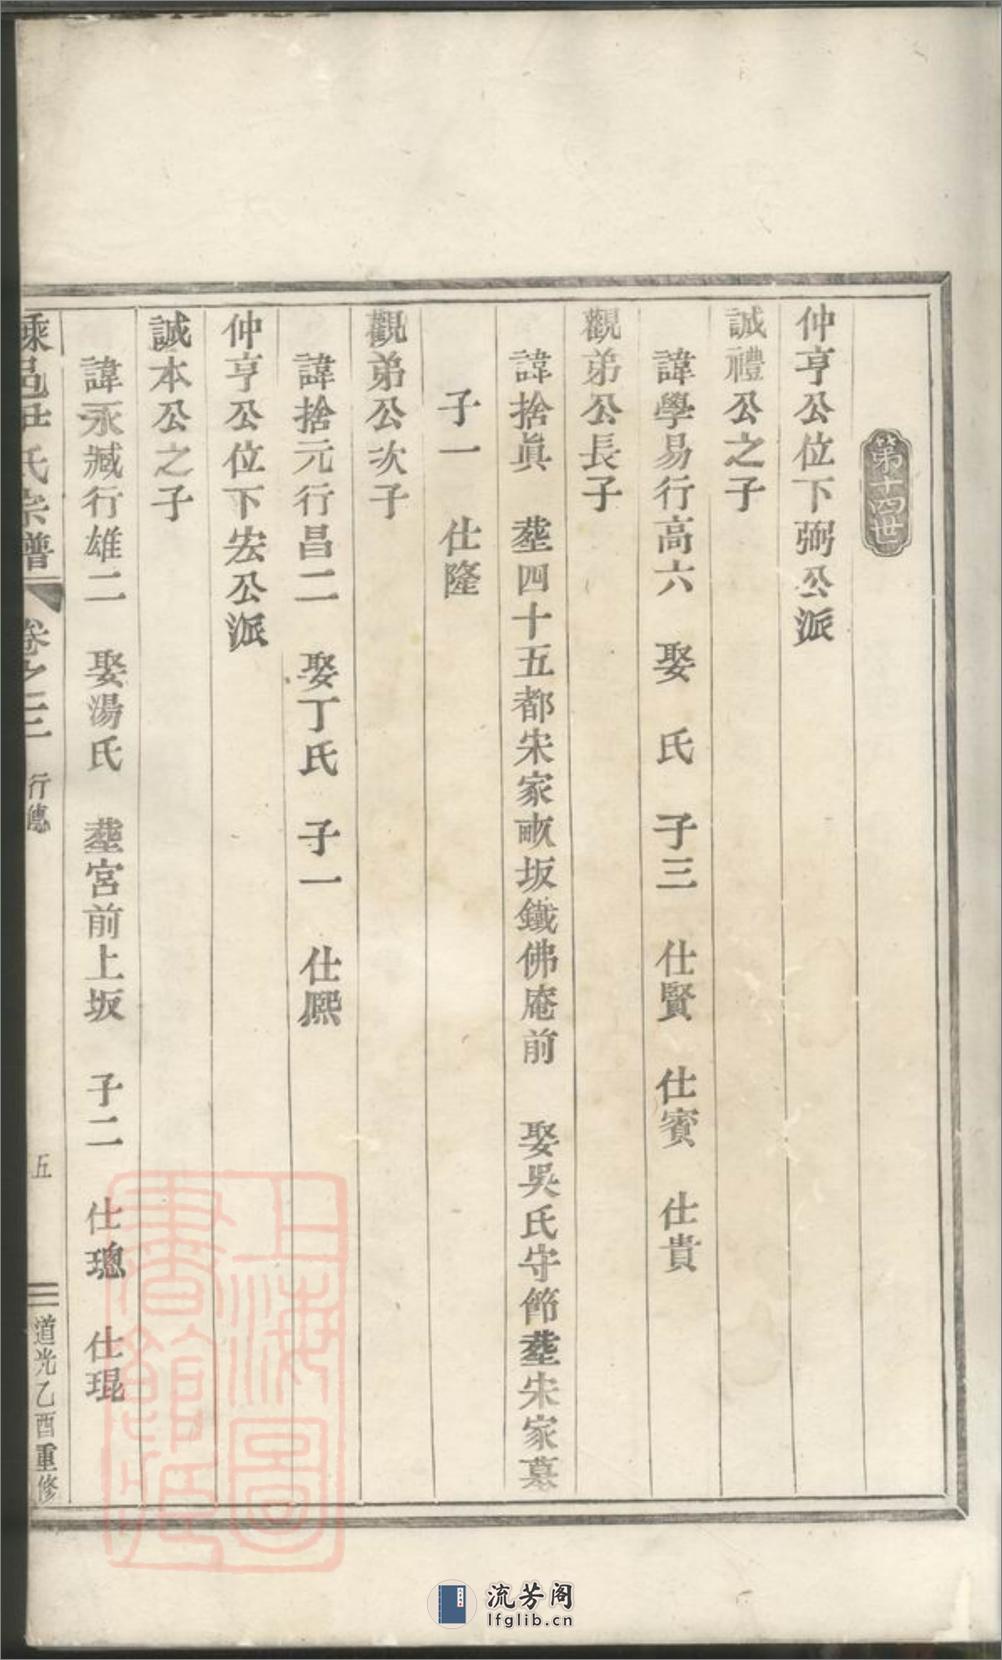 第十四世
仲亨公位下弼公派
誠禮公之子
諱學易行高六 娶 氏 子三 仕賢 仕賓 仕貴
觀弟公長子
諱捨眞 塟四十五都宋家畈坂鐵佛庵前 娶吳氏守節塟宋家墓
子一 仕隆
觀弟公次子
諱捨元行昌二 娶丁氏 子一 仕熙
仲亨公位下宏公派
誠本公之子
諱永臧行雄二 娶湯氏 塟宮前上坂 子二 仕璁 仕琨
氏宗譜 卷之二 行傳 五 道光乙酉重修
上海圖書館藏
流芳阁
lfglib.cn